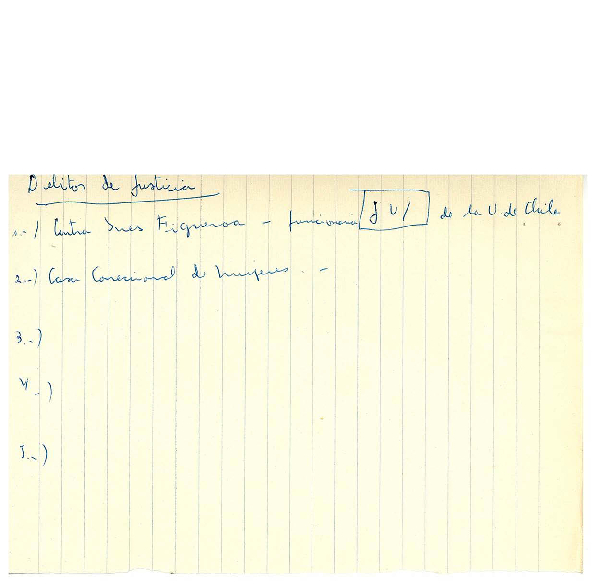 Delitos de Justicia
1.-) Contra Ines Figueroa - funcionaria J U de la U. de Chile
2.-) Casa Correccional de Mujeres. -
3.-)
4.-)
5.-)